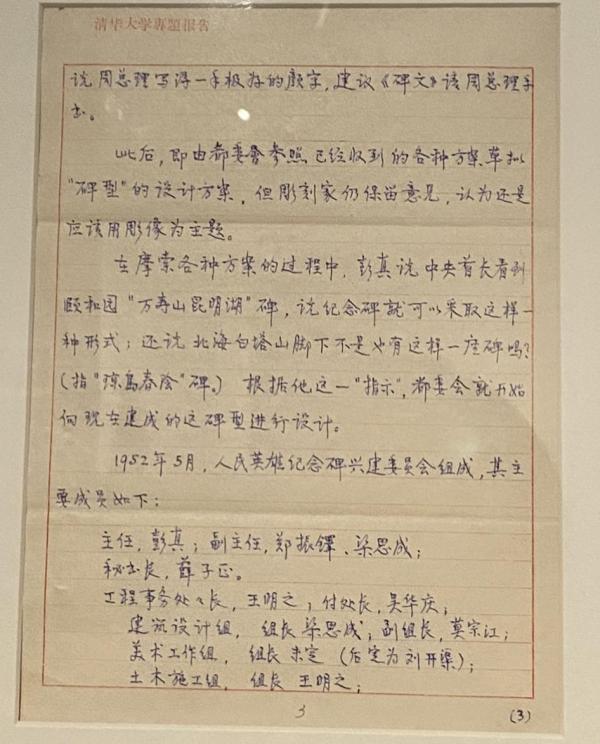 清华大学專題报告
说周总理写得一手极好的颜字，建议《碑文》该周总理手
书。
此后，即由都委會参照已经收到的各种方案草拟
“碑型”的设计方案，但彫刻家仍保留意见，认为还是
应该用彫像为主题。
在摩索各种方案的过程中，彭真说中央首长看到
颐和园“万寿山昆明湖”碑，说纪念碑就可以采取这样一
种形式；还说北海白塔山脚下不是也有这样一座碑吗？
（指“琼岛春阴”碑。）根据他这一“指示”，都委会就开始
向现在建成的这碑型进行设计。
1952年5月，人民英雄纪念碑兴建委员会组成，其主
要成员如下：
主任，彭真；副主任，郑振铎、梁思成；
秘书长，薛子正。
工程事务处处长，王明之；付处长，吴华庆；
建筑设计组，组长梁思成；副组长，莫宗江；
美术工作组，组长未定（后定为刘开渠）；
土木施工组，组长王明之；
3
(3)